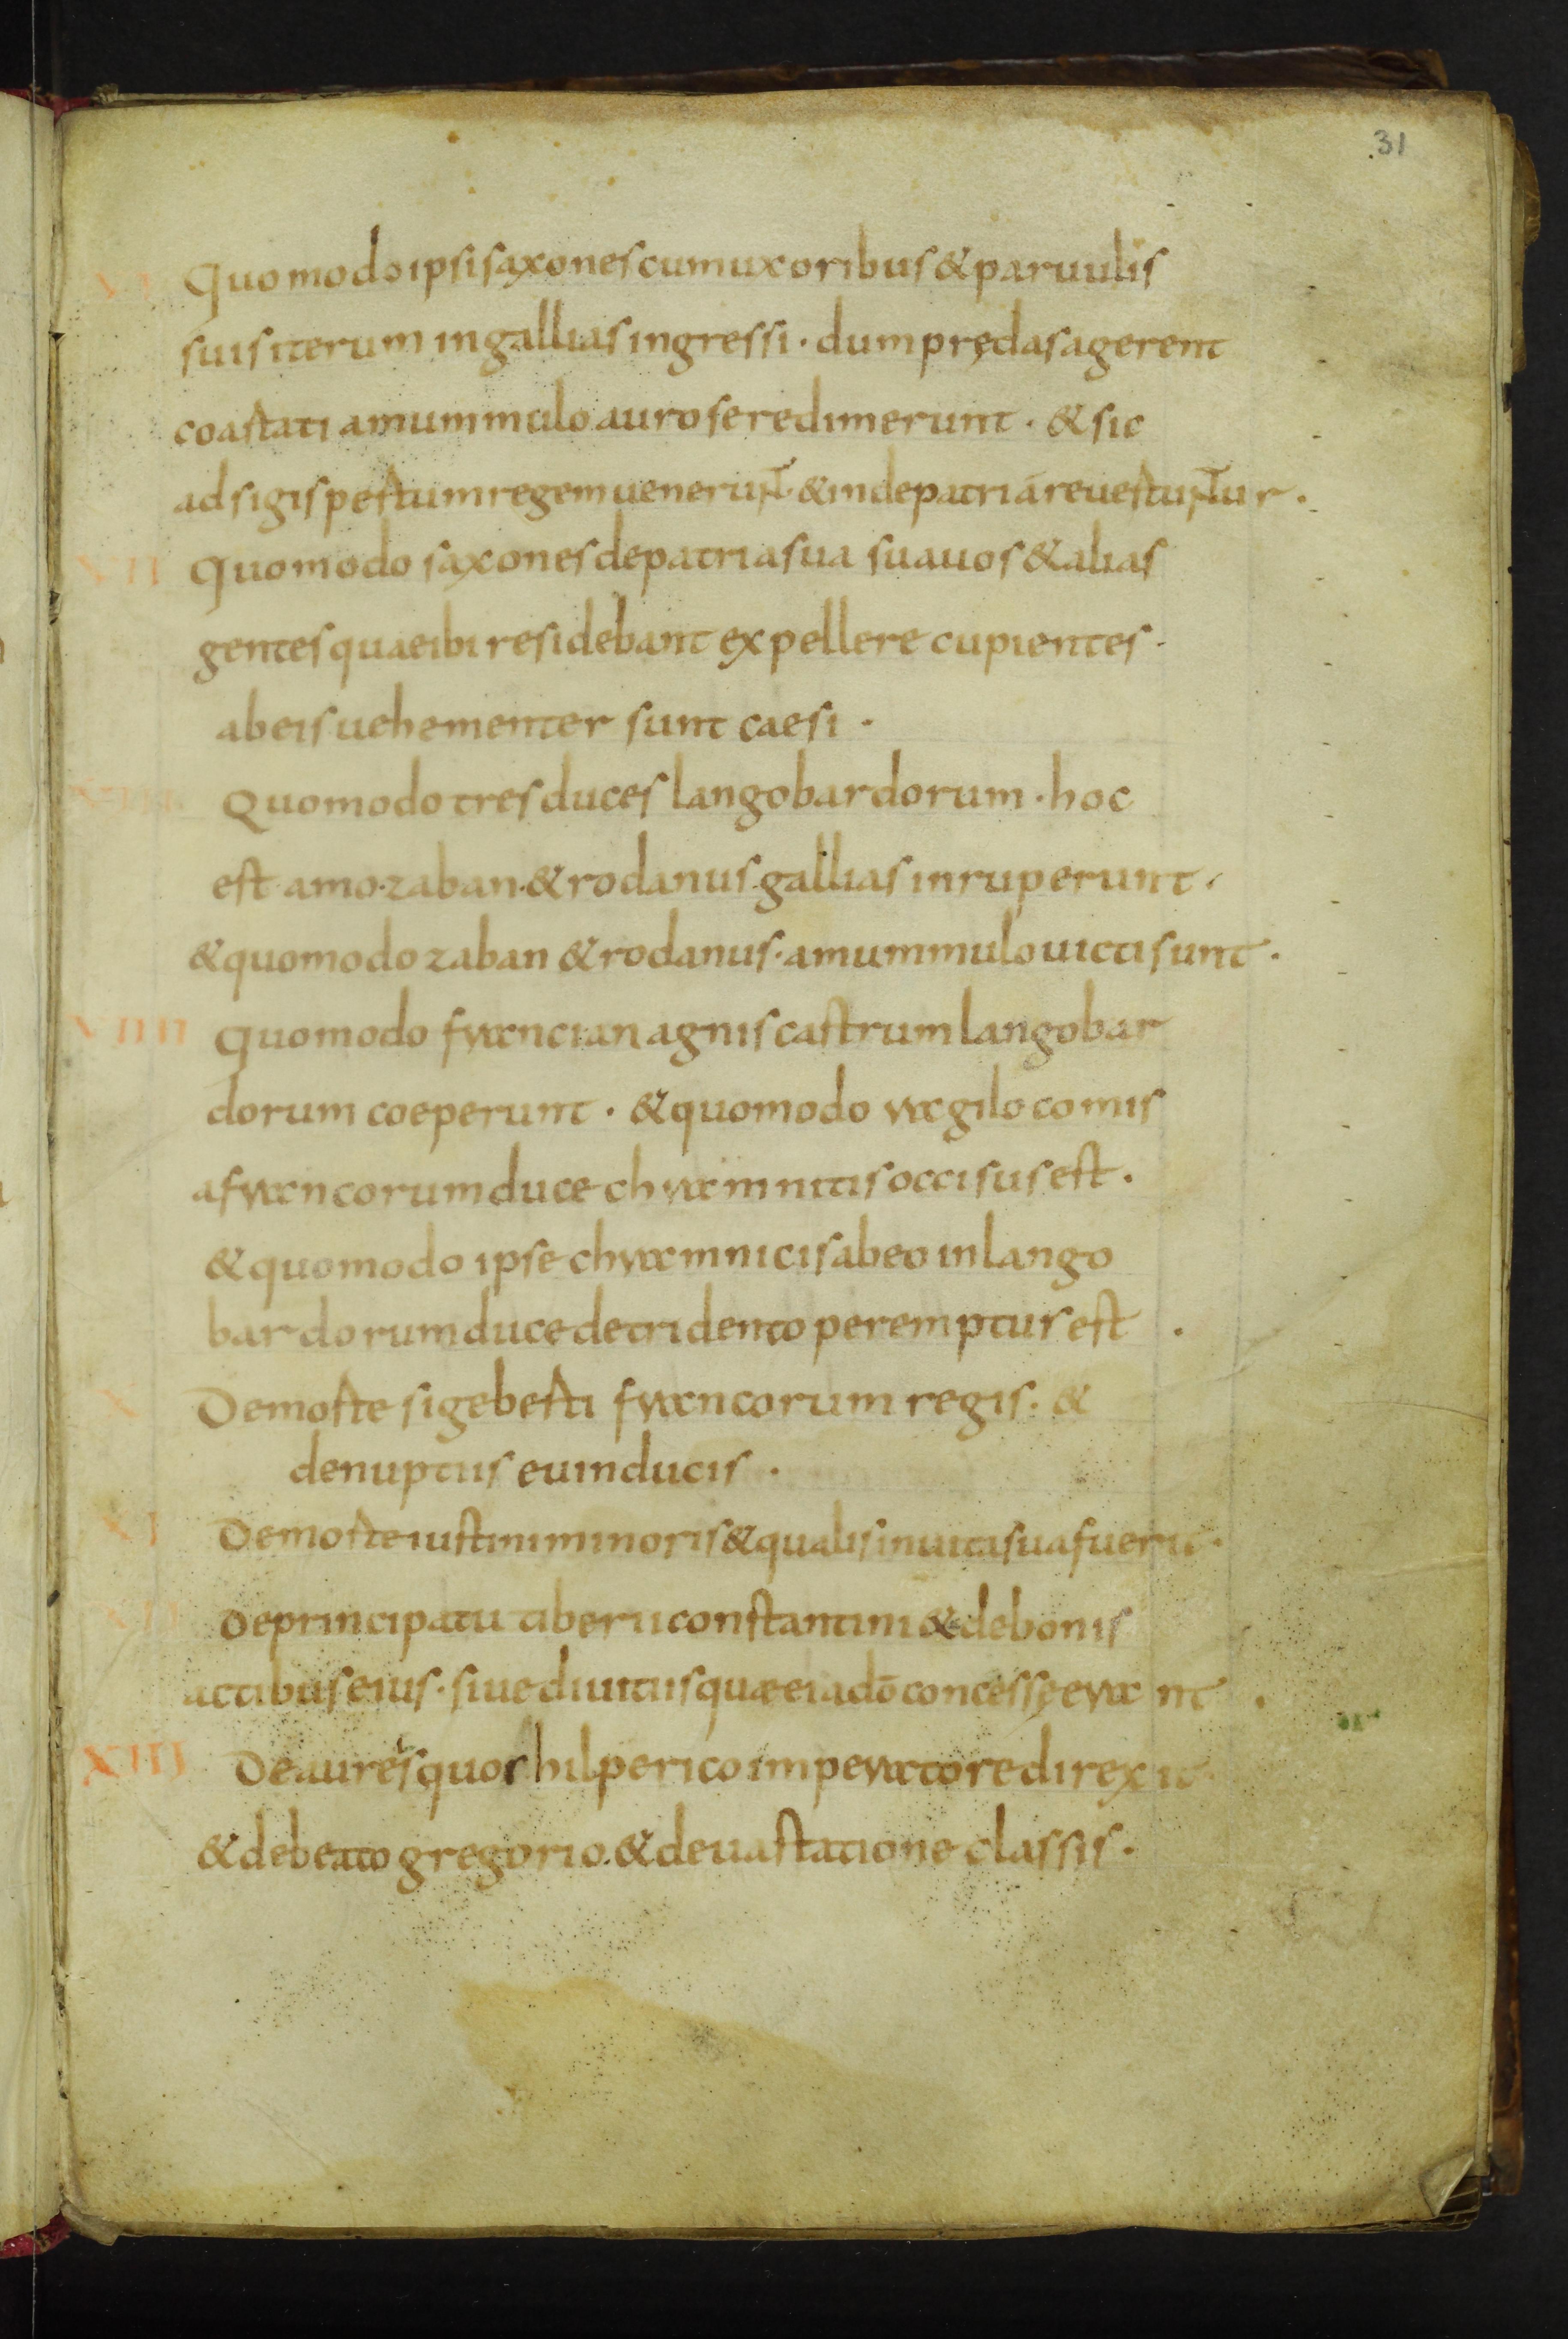 31
XI Quomodo ipsi saxones cum uxoribus & paruulis
suis iterum in gallias ingressi · dum prędas agerent
coartati a mummulo auro se redimerunt · & sic
ad sigispertum regem uenerunt · & inde patriā reuertuntur ·
XII Quomodo saxones de patria sua suauos & alias
gentes quae ibi residebant expellere cupientes ·
ab eis uehementer sunt caesi ·
XIII Quomodo tres duces langobardorum · hoc
est amo · zaban · & rodanus · gallias inruperunt ·
& quomodo zaban & rodanus · a mummulo uicti sunt ·
XIIII Quomodo franci anagnis castrum langobar
dorum coeperunt · & quomodo ragilo comis
a francorum duce chramnitis occisus est ·
& quomodo ipse chramnicis ab eo in lango
bardorum duce de tridento peremptus est ·
X De morte sigeberti francorum regis · &
de nuptiis euin ducis ·
XI De morte iustini minoris & qualis in uita sua fuerit ·
XII De principatu tiberii constantini & de bonis
actibus eius · siue diuitiis quae ei a dō concessę erant ·
XIII De aureis quos hilperico imperatore direxit
& de beato gregorio · & deuastatione classis ·